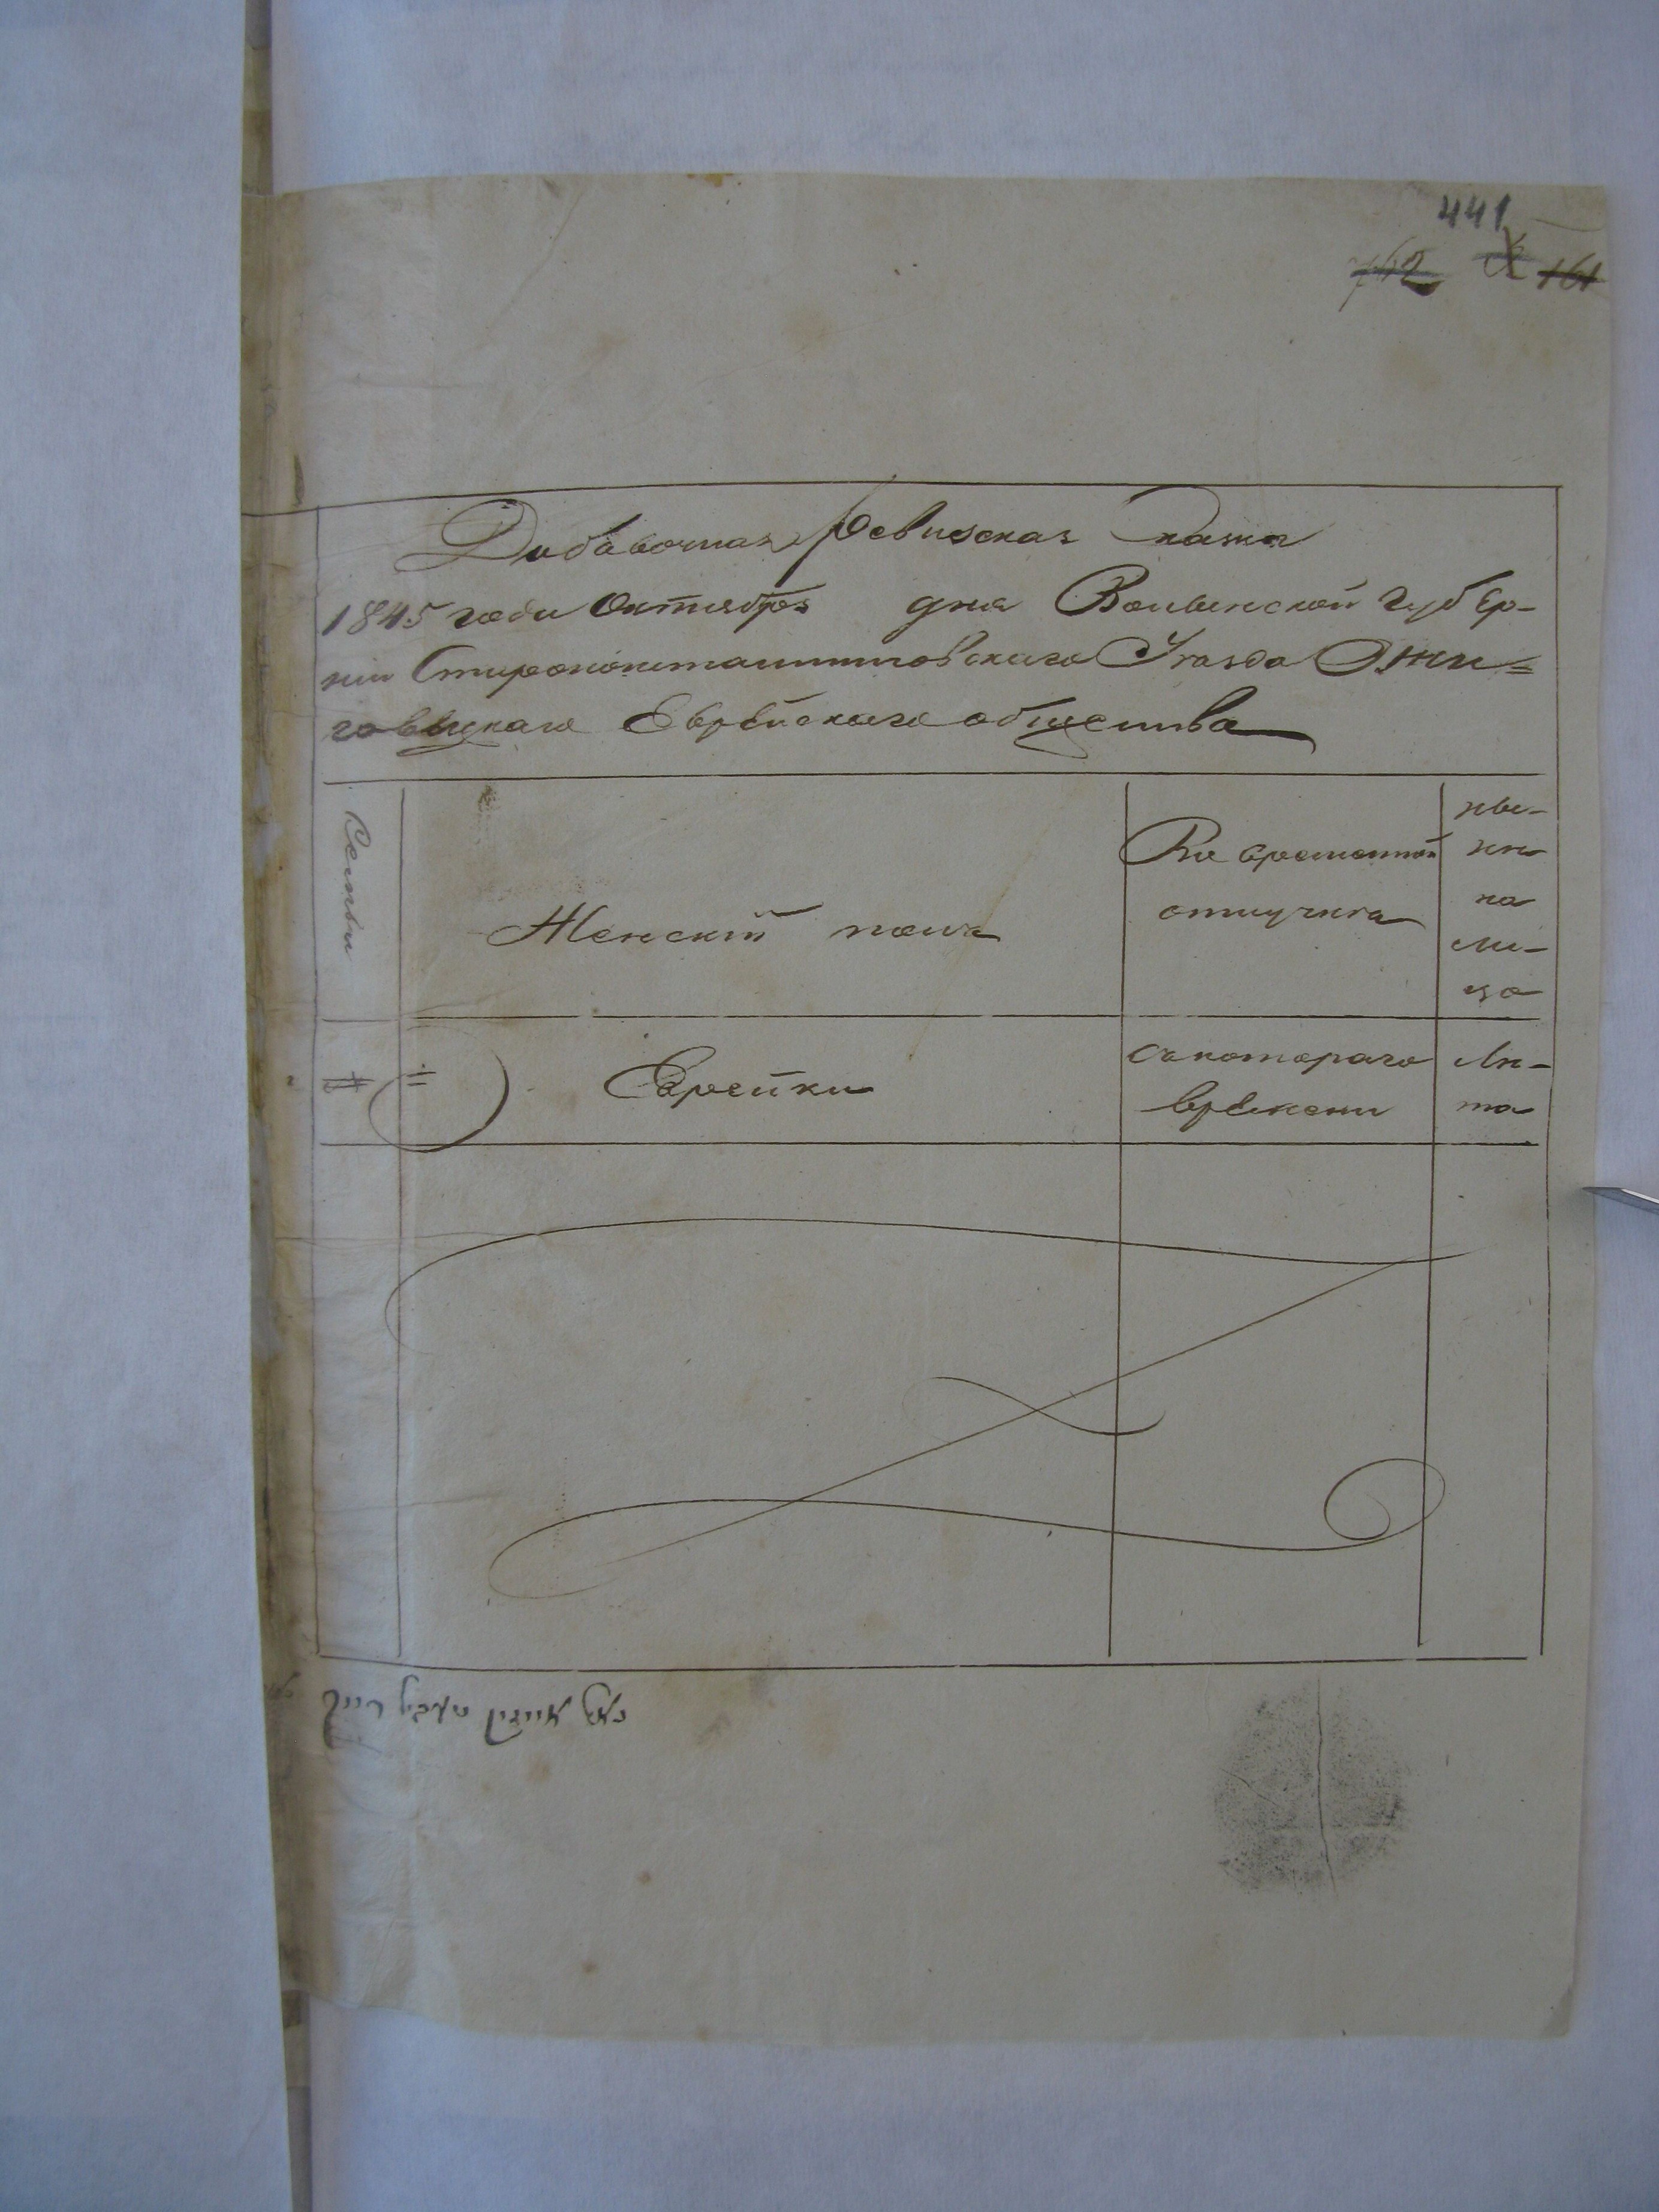 441
762 161
Добавочная ревизская сказка
1845 года Октября дня Волынской губер-
нии Староконстантиновского Уезда Ожи-
говецкаго Еврейскаго общества
Семьи
Женскій полъ
Во временной
отлучке
ны-
не
на
ли-
цо
№
Еврейки
съ котораго
времени
Ле-
та